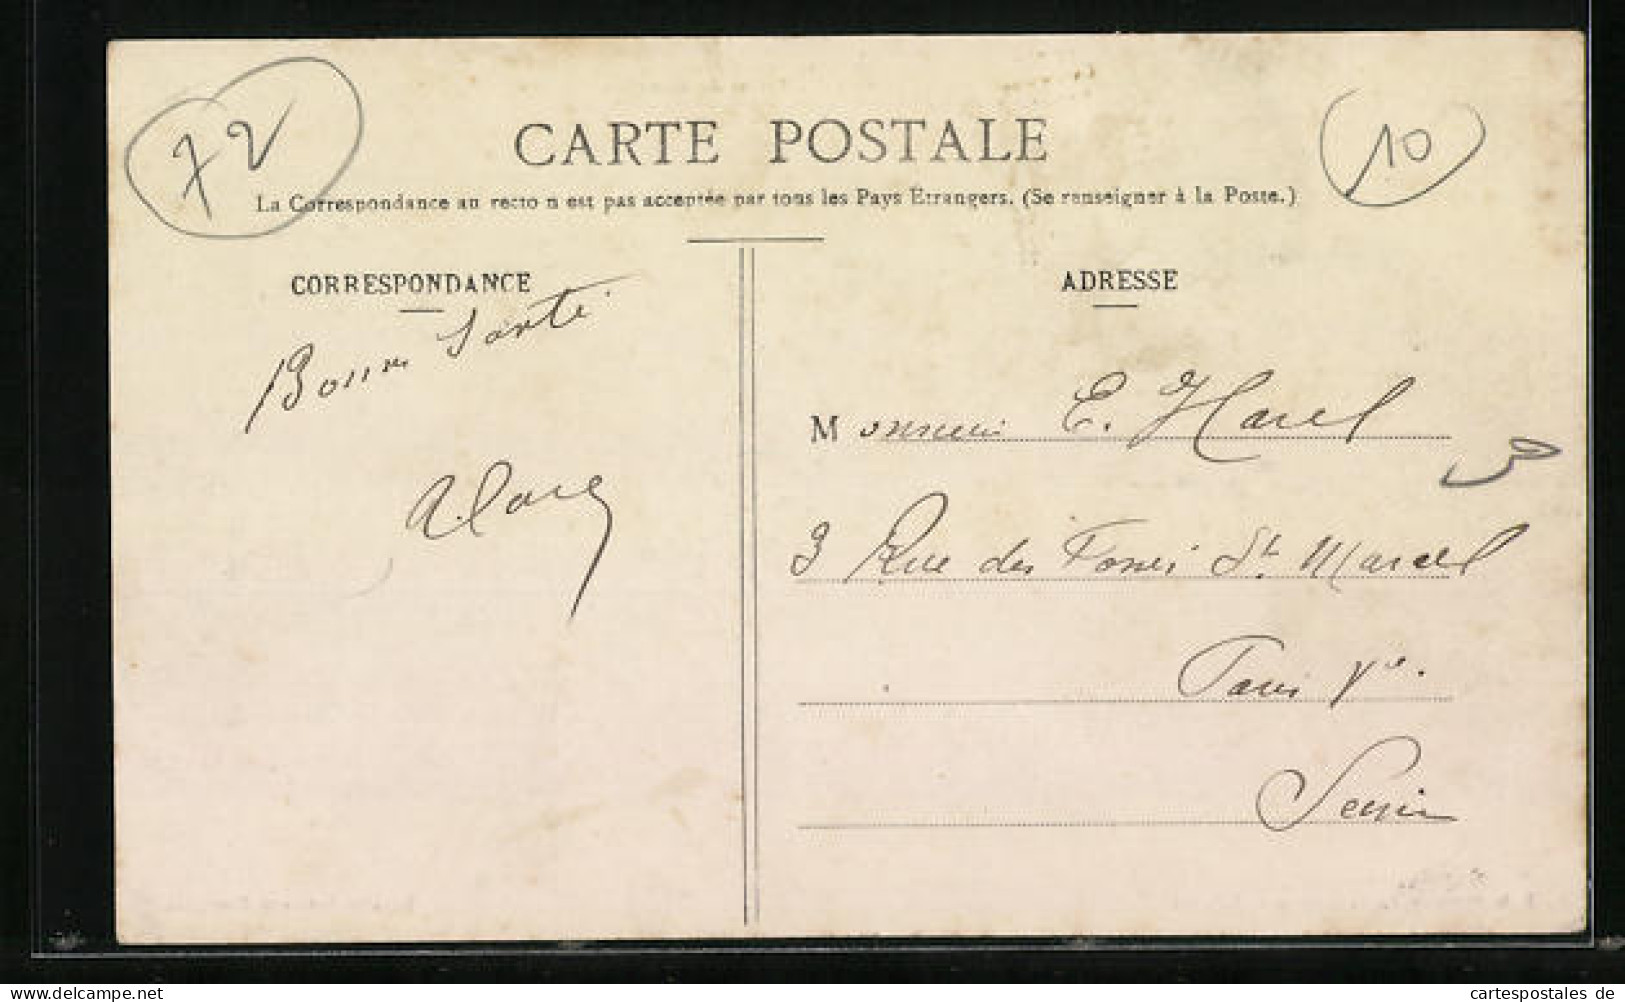 72
10
CARTE POSTALE
La Correspondance au recto n'est pas acceptée par tous les Pays Etrangers. (Se renseigner à la Poste.)
CORRESPONDANCE
Bonne Santé
ADRESSE
Monsieur E. Harel
3 Rue des Fossés St Marcel
Paris Ve.
Seine
www.delcampe.net
cartespostales de